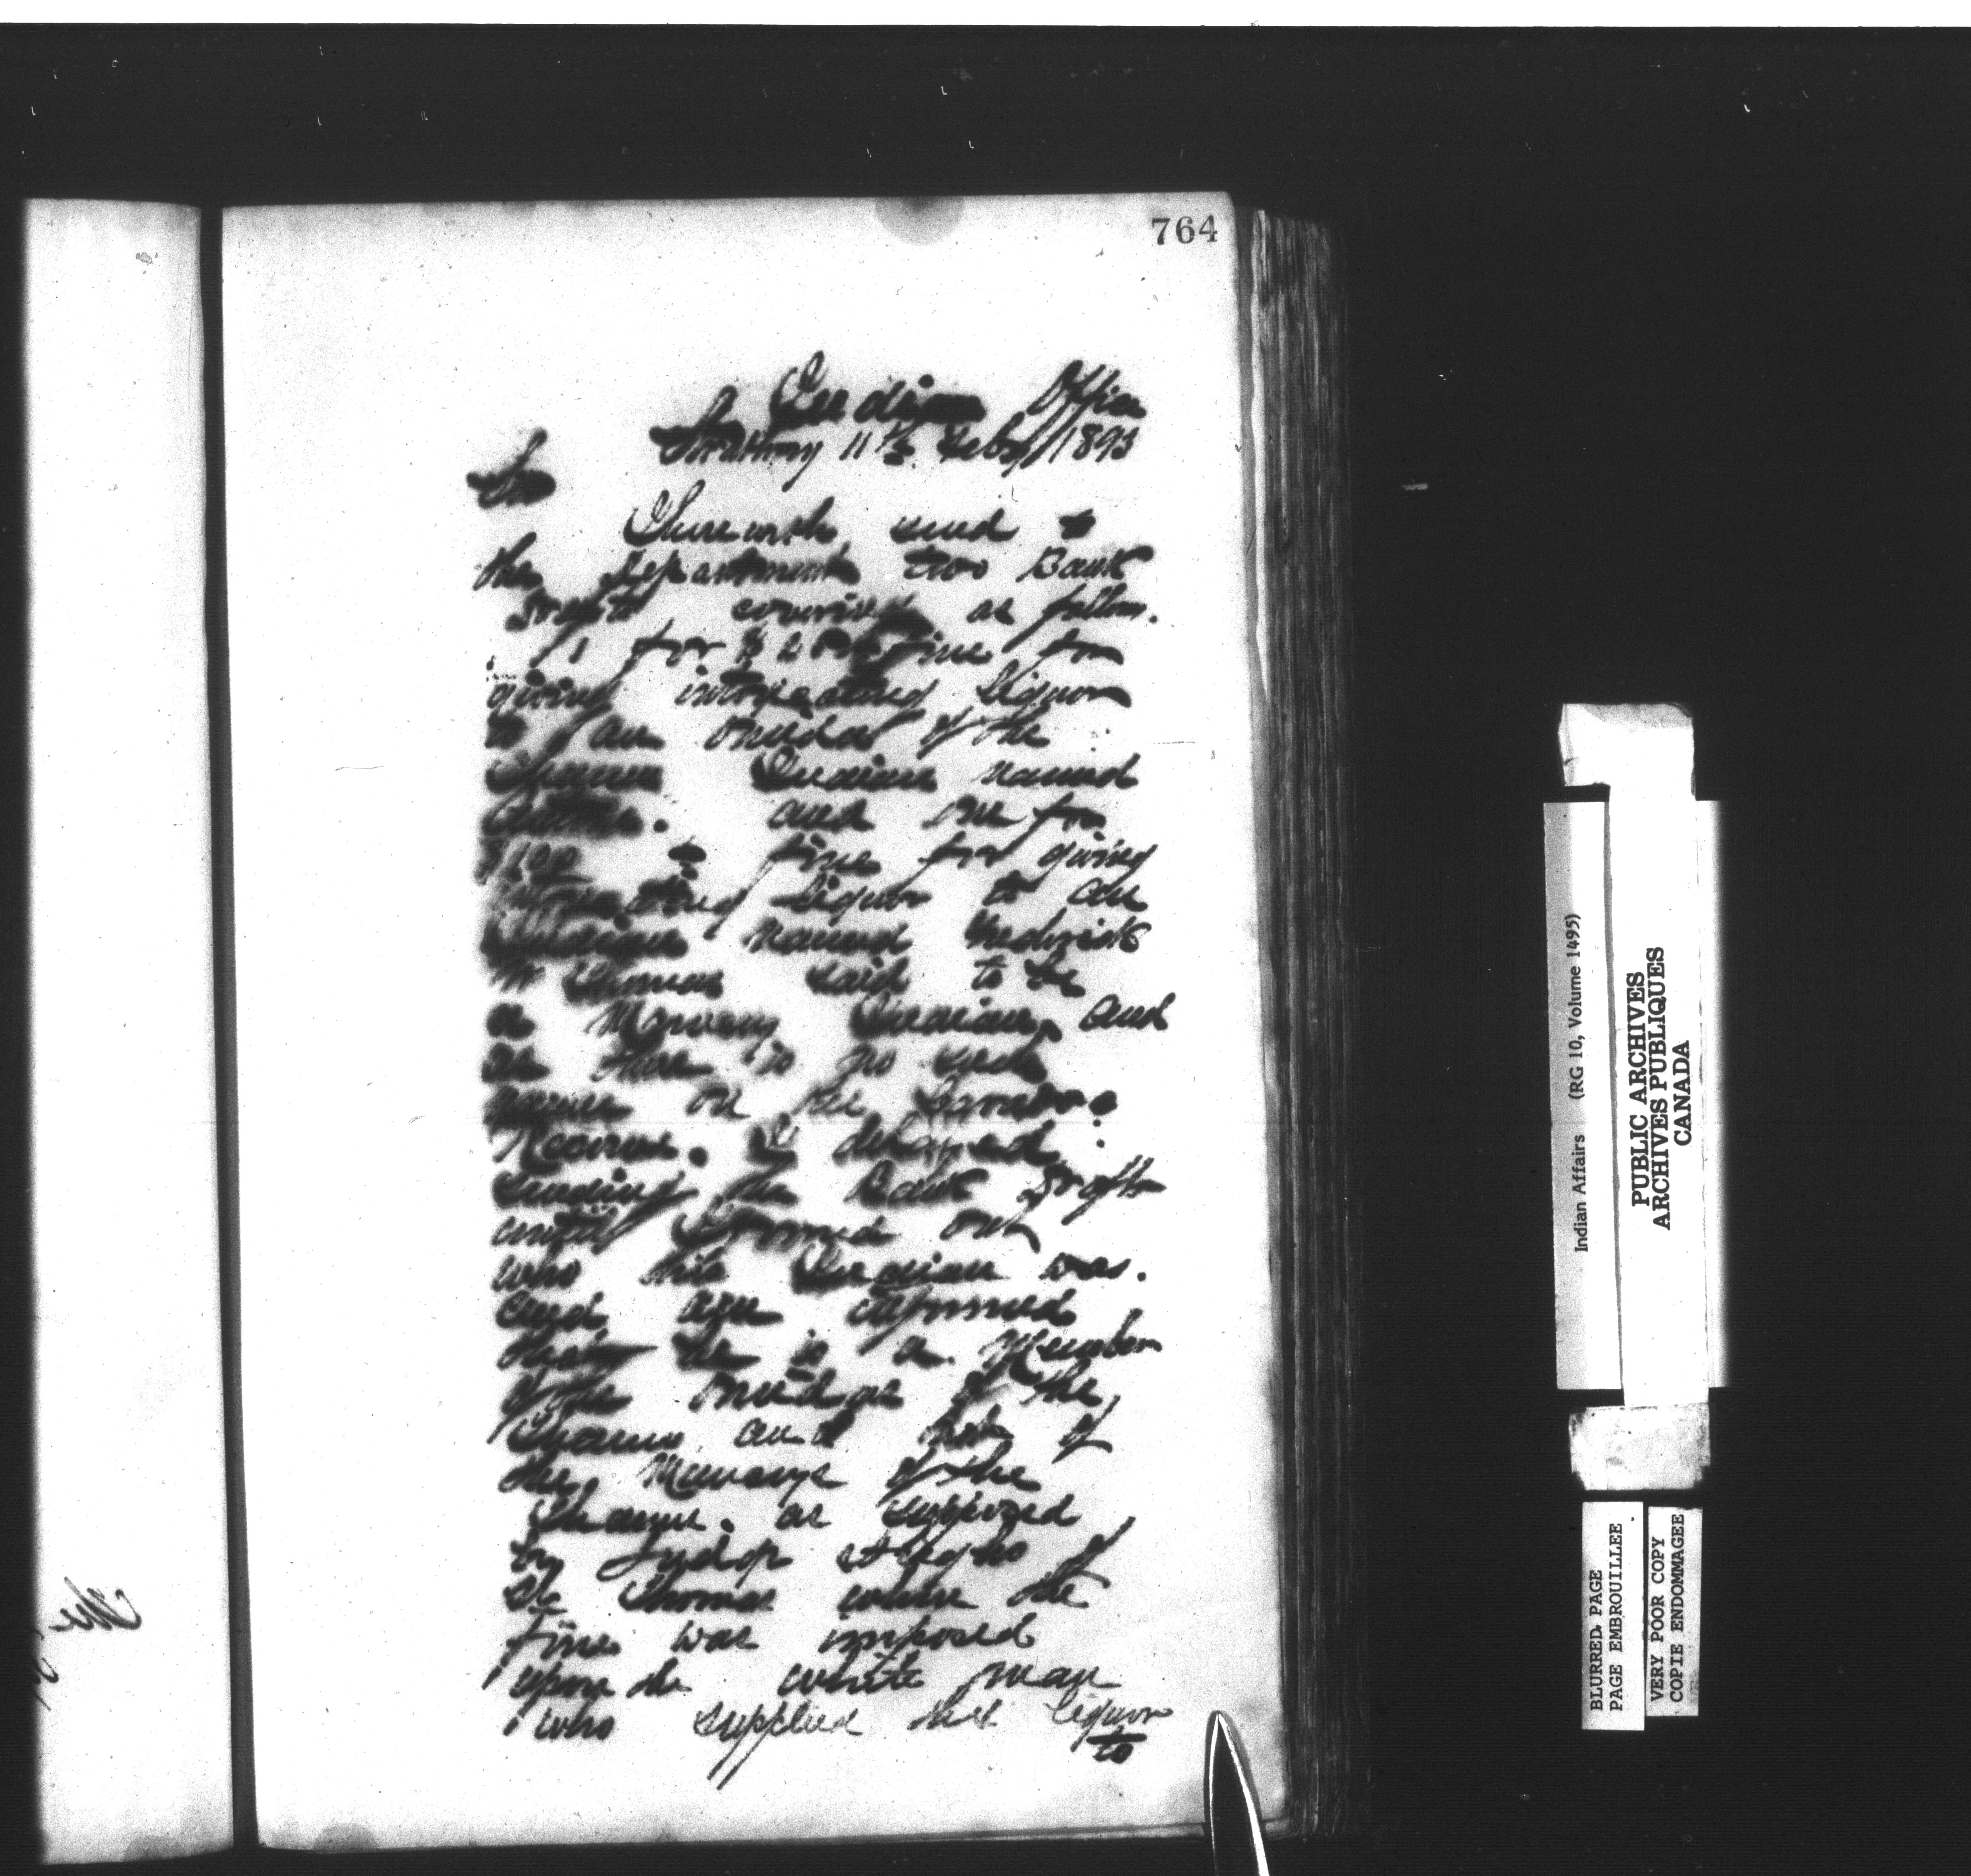 764
Indian Office
Strathroy 11th Feby 1893
Sir
I herewith send to
the Department two Bank
Drafts as follows.
1 for $ fine for
giving intoxicating liquor
to an Oneida of the
Thames Indian named
and one for
fine for giving
intoxicating liquor to an
Indian named
said to be
a Muncey Indian, and
as there is no such
name on the
Reserve. I delayed
sending the Bank Drafts
until I found out
who this Indian was.
and am informed
that he is a Member
of the Oneidas of the
Thames and not of
the Munceys of the
Thames. as supposed
by Judge of
St Thomas where the
fine was imposed
upon the white man
who supplied the liquor
to
The
Indian Affairs (RG 10, Volume 1495)
PUBLIC ARCHIVES
ARCHIVES PUBLIQUES
CANADA
BLURRED PAGE
PAGE EMBROUILLEE
VERY POOR COPY
COPIE ENDOMMAGEE